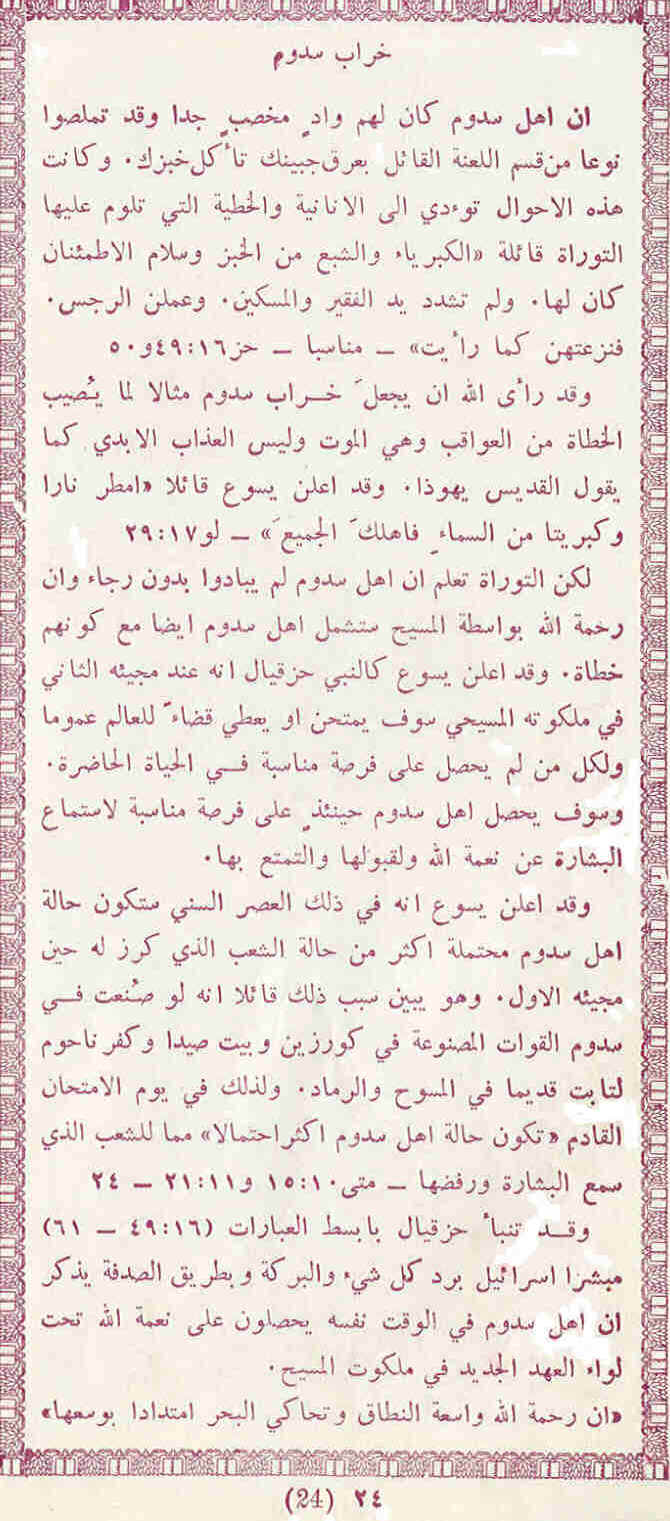 خراب سدوم
ان اهل سدوم كان لهم وادٍ مخصبٍ جدا وقد تملصوا
نوعا من قسم اللعنة القائل بعرق جبينك تأكل خبزك. وكانت
هذه الاحوال توءدي الى الانانية والخطية التي تلوم عليها
التوراة قائلة «الكبرياء والشبع من الخبز وسلام الاطمئنان
كان لها. ولم تشدد يد الفقير والمسكين. وعملن الرجس.
فنزعتهن كما رأيت» ــ مناسبا ــ حز١٦:٤٩و٥٠
وقد رأى الله ان يجعلَ خراب سدوم مثالا لما يُصيب
الخطاة من العواقب وهي الموت وليس العذاب الابدي كما
يقول القديس يهوذا. وقد اعلن يسوع قائلا «امطر نارا
وكبريتا من السماءِ فاهلكَ الجميعَ» ــ لو١٧:٢٩
لكن التوراة تعلم ان اهل سدوم لم يبادوا بدون رجاء وان
رحمة الله بواسطة المسيح ستشمل اهل سدوم ايضا مع كونهم
خطاة. وقد اعلن يسوع كالنبي حزقيال انه عند مجيئه الثاني
في ملكوته المسيحي سوف يمتحن او يعطي قضاءً للعالم عموما
ولكل من لم يحصل على فرصة مناسبة في الحياة الحاضرة.
وسوف يحصل اهل سدوم حينئذٍ على فرصة مناسبة لاستماع
البشارة عن نعمة الله ولقبولها والتمتع بها.
وقد اعلن يسوع انه في ذلك العصر السني ستكون حالة
اهل سدوم محتملة اكثر من حالة الشعب الذي كرز له حين
مجيئه الاول. وهو يبين سبب ذلك قائلا انه لو صُنعت في
سدوم القوات المصنوعة في كورزين وبيت صيدا وكفرناحوم
لتابت قديما في المسوح والرماد. ولذلك في يوم الامتحان
القادم «تكون حالة اهل سدوم اكثر احتمالا» مما للشعب الذي
سمع البشارة ورفضها ــ متى١٠:١٥ و١١:٢١ ــ ٢٤
وقد تنبأ حزقيال بابسط العبارات (١٦:٤٩ ــ ٦١)
مبشرا اسرائيل برد كل شيء والبركة وبطريق الصدفة يذكر
ان اهل سدوم في الوقت نفسه يحصلون على نعمة الله تحت
لواء العهد الجديد في ملكوت المسيح.
«ان رحمة الله واسعة النطاق وتحاكي البحر امتدادا بوسعها»
٢٤ (24)